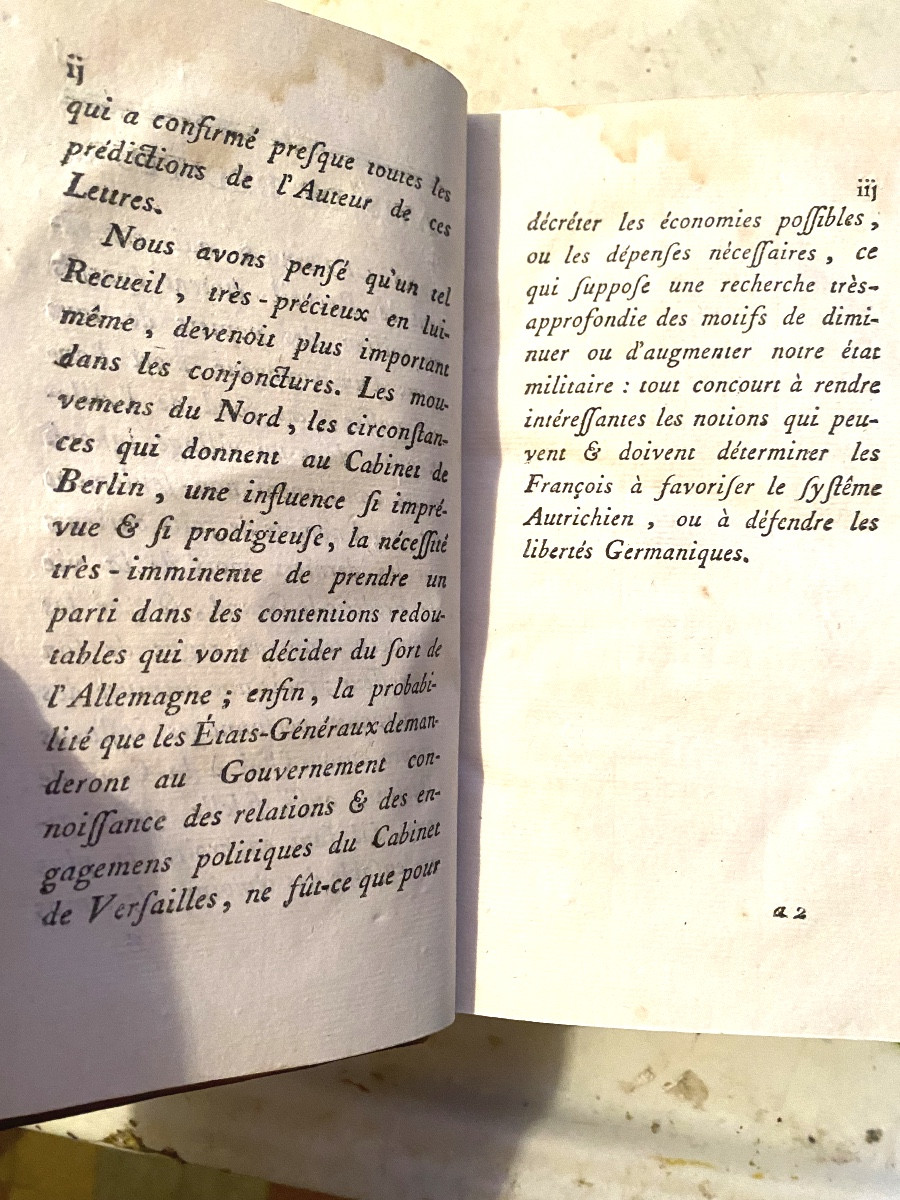 ij
qui a confirmé preſque toutes les
prédictions de l'Auteur de ces
Lettres.
Nous avons penſé qu'un tel
Recueil , très-précieux en lui-
même , devenoit plus important
dans les conjonctures. Les mou-
vemens du Nord, les circonſtan-
ces qui donnent au Cabinet de
Berlin , une influence ſi impré-
vue & ſi prodigieuſe, la néceſſité
très-imminente de prendre un
parti dans les contentions redou-
tables qui vont décider du ſort de
l'Allemagne ; enfin, la probabi-
lité que les États-Généraux deman-
deront au Gouvernement con-
noiſſance des relations & des en-
gagemens politiques du Cabinet
de Verſailles, ne fût-ce que pour
iij
décréter les économies poſſibles ,
ou les dépenſes néceſſaires , ce
qui ſuppoſe une recherche très-
approfondie des motifs de dimi-
nuer ou d'augmenter notre état
militaire : tout concourt à rendre
intéreſſantes les notions qui peu-
vent & doivent déterminer les
François à favoriſer le ſyſtême
Autrichien , ou à défendre les
libertés Germaniques.
a 2